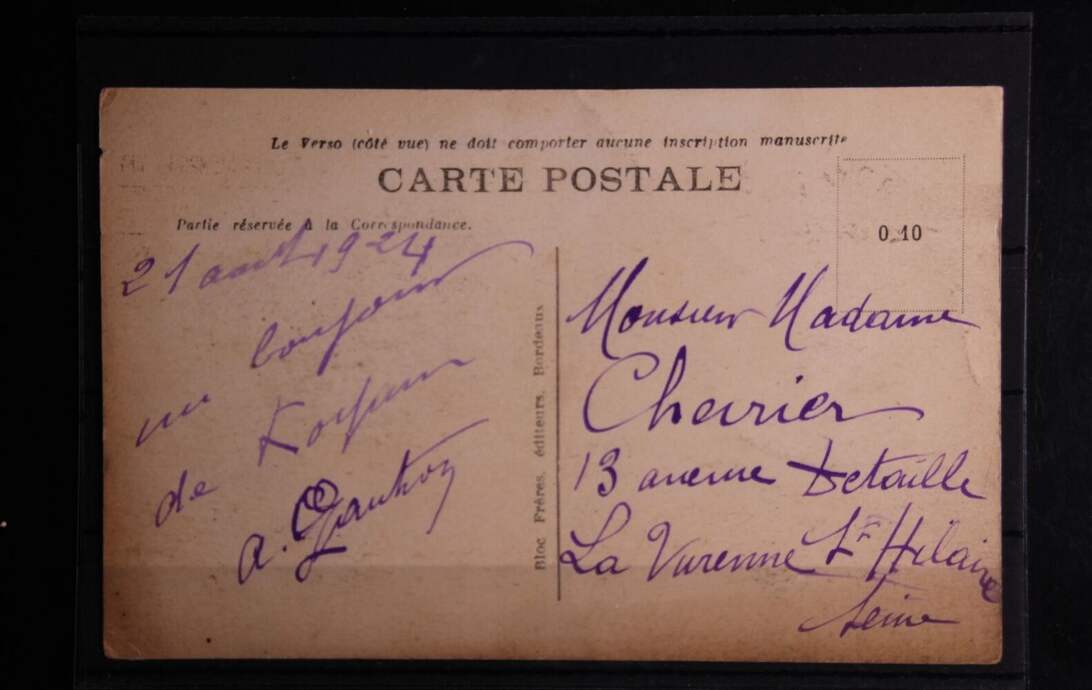 Le Verso (côté vue) ne doit comporter aucune inscription manuscrite
CARTE POSTALE
Partie réservée à la Correspondance.
0.10
21 août 1924
un bonjour
de
A.
Bloc Frères, éditeurs, Bordeaux
Monsieur Madame
Chevrier
13 avenue Detaille
La Varenne St Hilaire
Seine